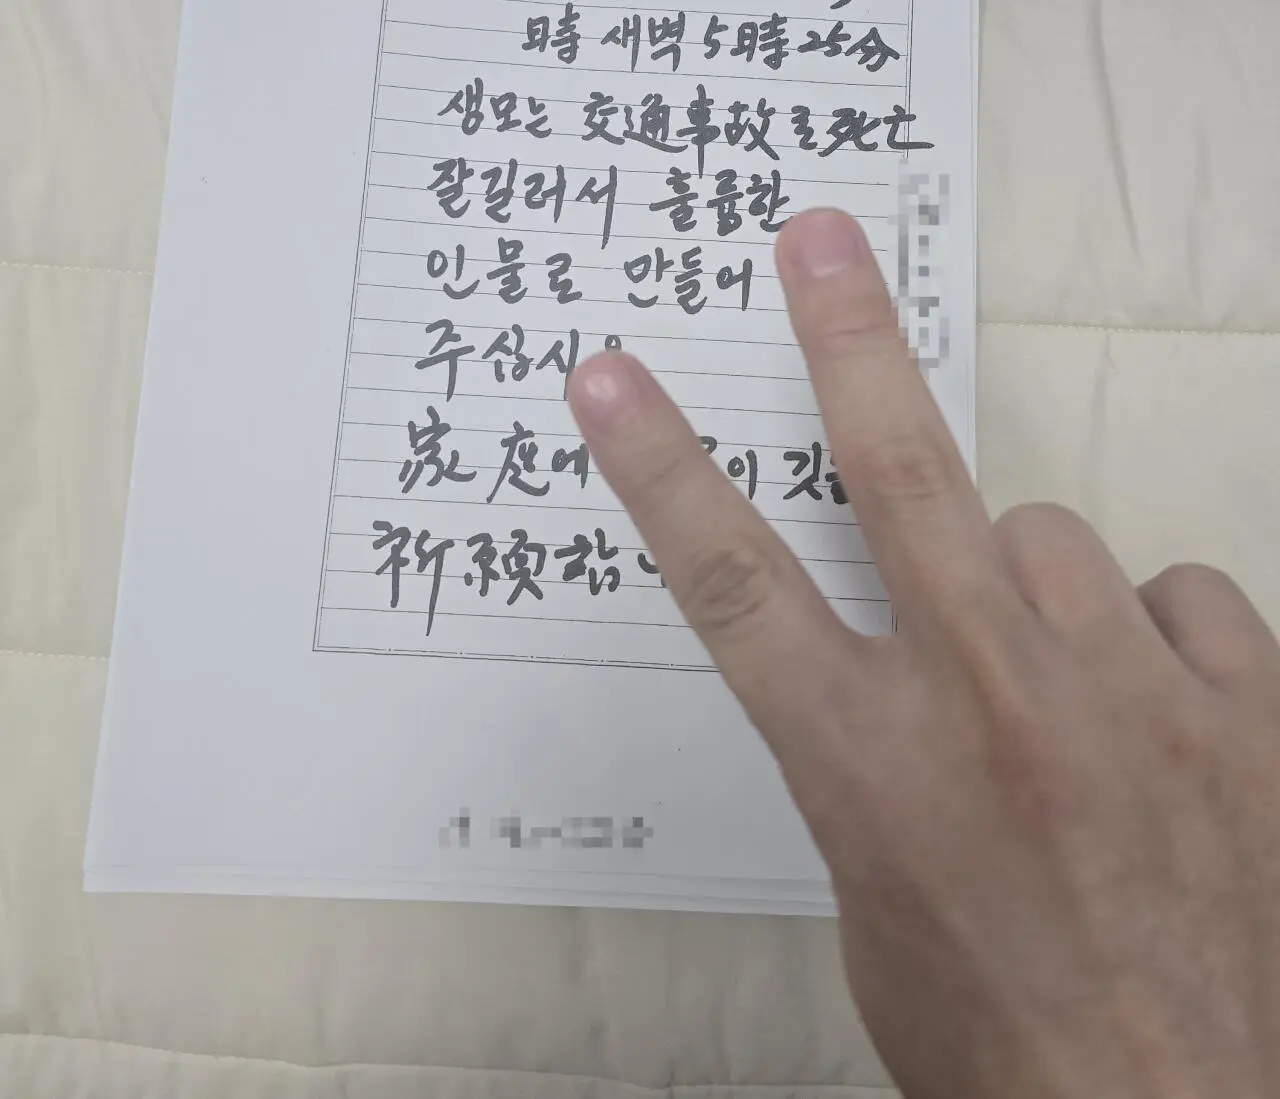 時 새벽 5時 25分
생모는 交通事故로 死亡
잘길러서 훌륭한
인물로 만들어
주십시
家庭에 이 깃들
祈願합니